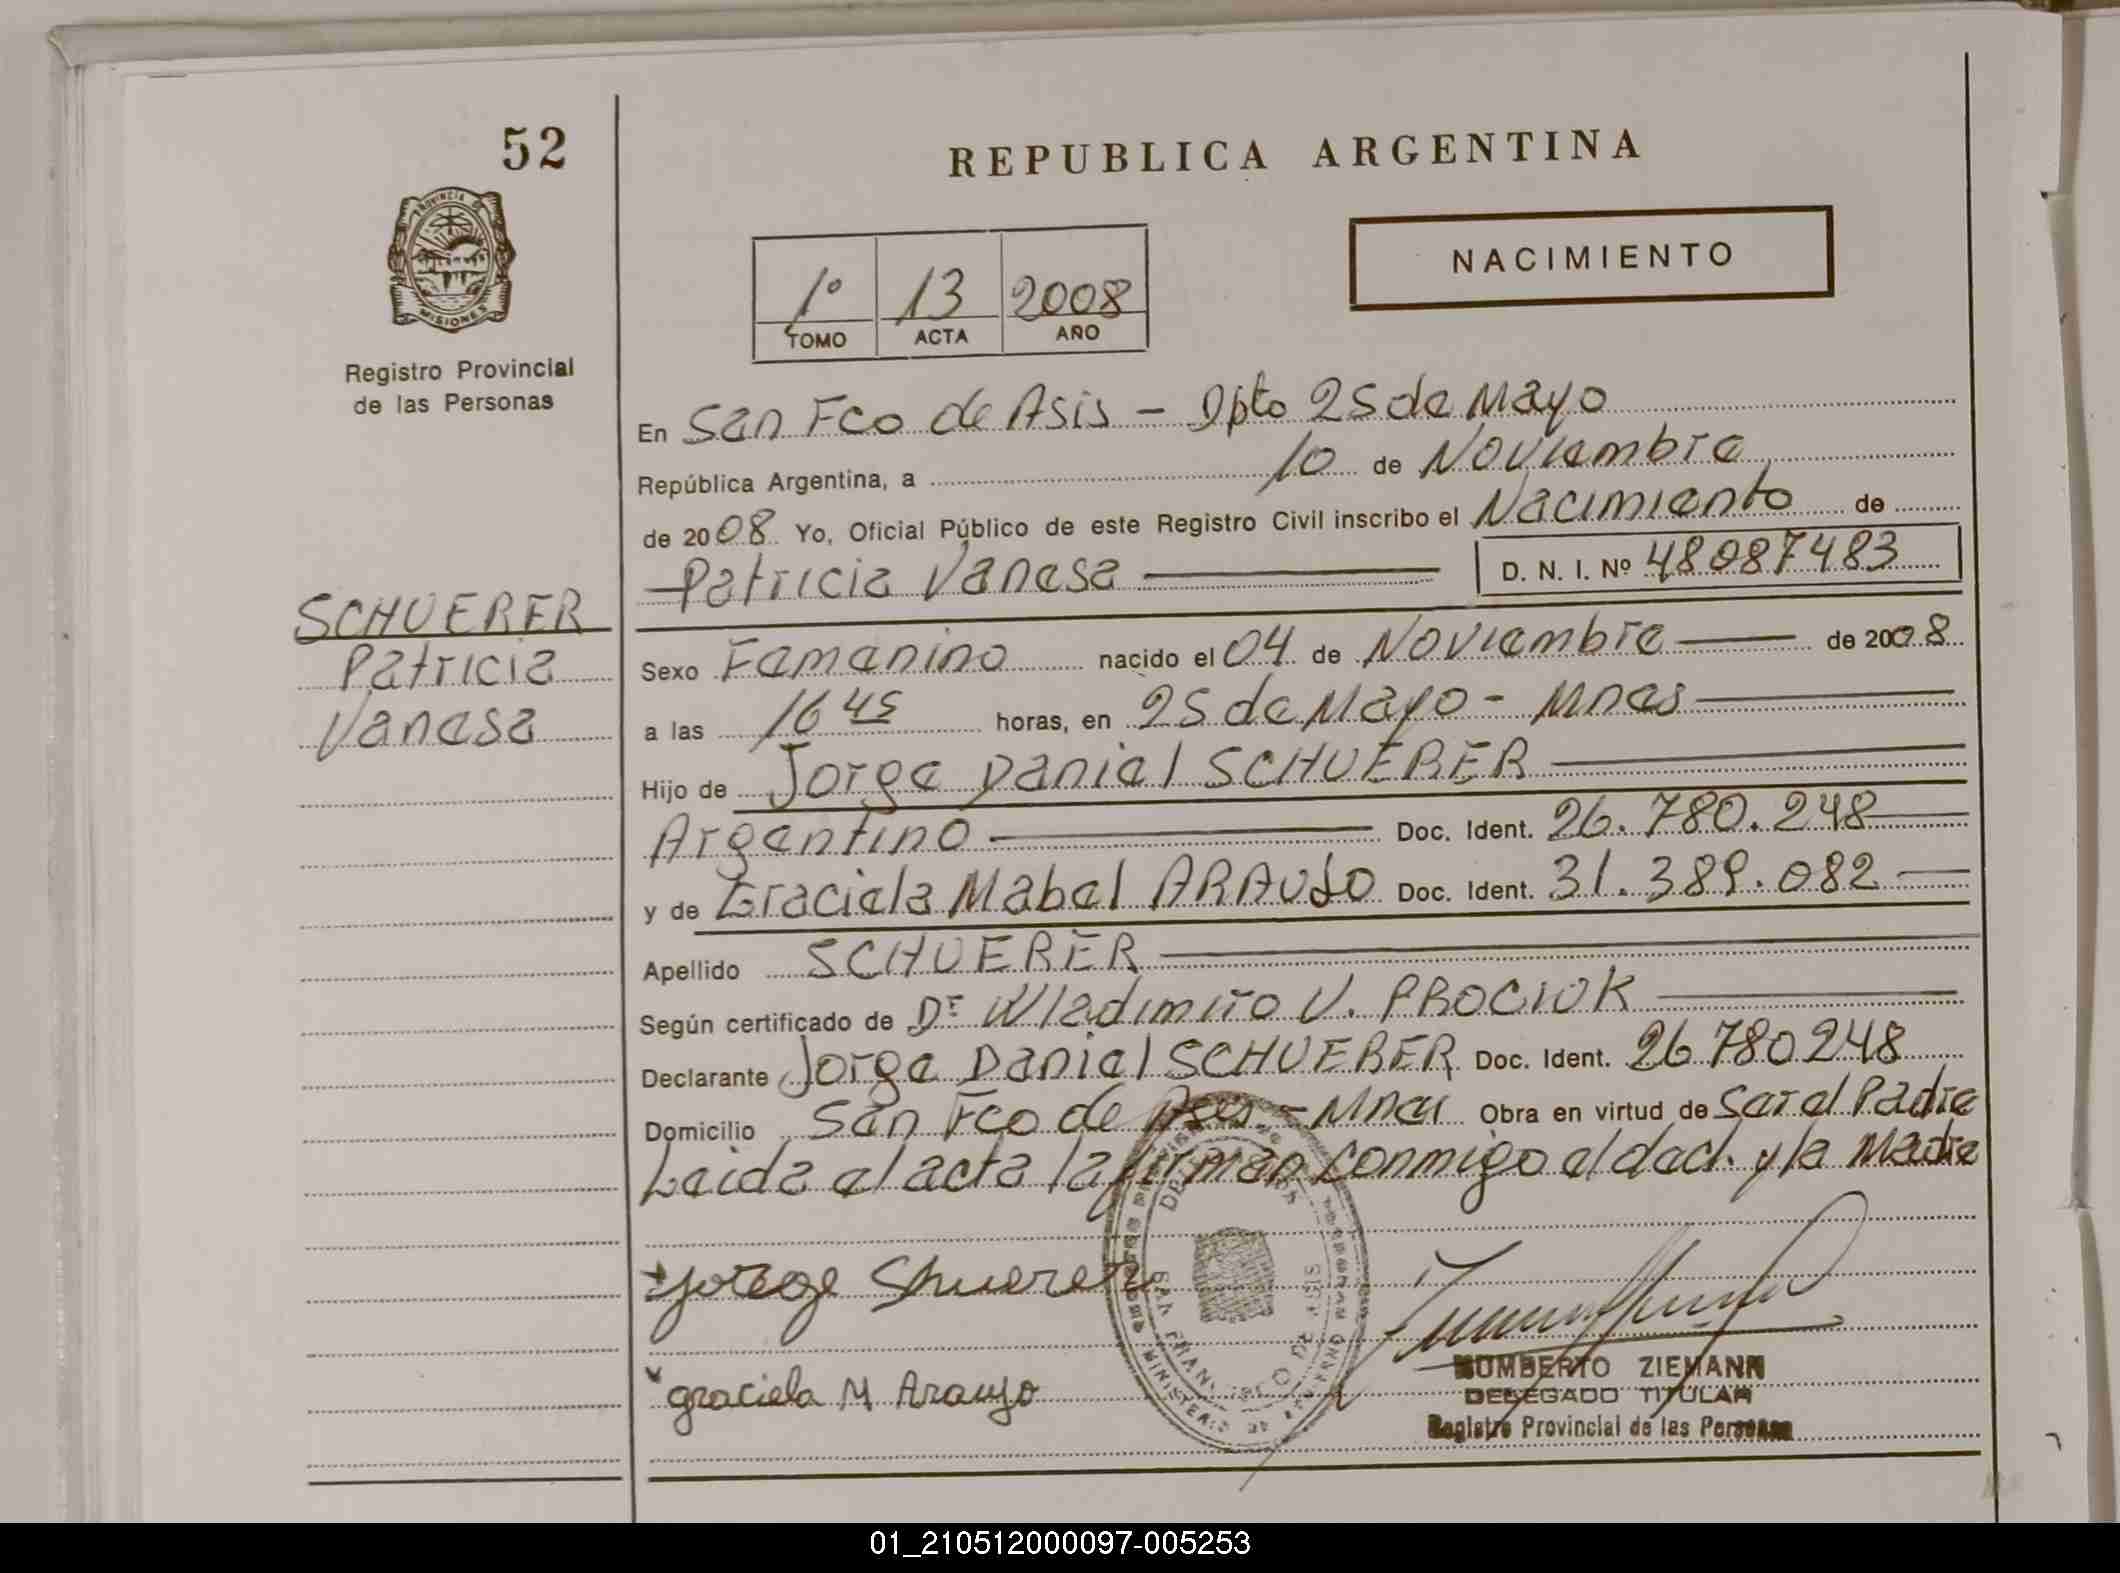 52
REPUBLICA ARGENTINA
PROVINCIA DE
MISIONES
Registro Provincial
de las Personas
1º 13 2008
TOMO ACTA AÑO
NACIMIENTO
En San Fco de Asis - Dpto 25 de Mayo
República Argentina, a 10 de Noviembre
de 2008 Yo, Oficial Público de este Registro Civil inscribo el Nacimiento de
Patricia Vanesa D. N. I. Nº 48087483
SCHUERER
Patricia
Vanesa
Sexo Femenino nacido el 04 de Noviembre de 2008
a las 16 45 horas, en 25 de Mayo - Mnes
Hijo de Jorge Daniel SCHUERER
Argentino Doc. Ident. 26.780.248
y de Graciela Mabel ARAUJO Doc. Ident. 31.389.082
Apellido SCHUERER
Según certificado de Dr Wladimiro V. PROCIUK
Declarante Jorge Daniel SCHUERER Doc. Ident. 26780248
Domicilio San Fco de Asis - Mnes Obra en virtud de Ser el Padre
Leida el acta la firman conmigo el decl. y la Madre
Jorege Shuerer
SAN FRANCISCO DE ASIS
MINISTERIO DE GOBIERNO
graciela M Araujo
HUMBERTO ZIEMANN
DELEGADO TITULAR
Registro Provincial de las Personas
01_210512000097-005253